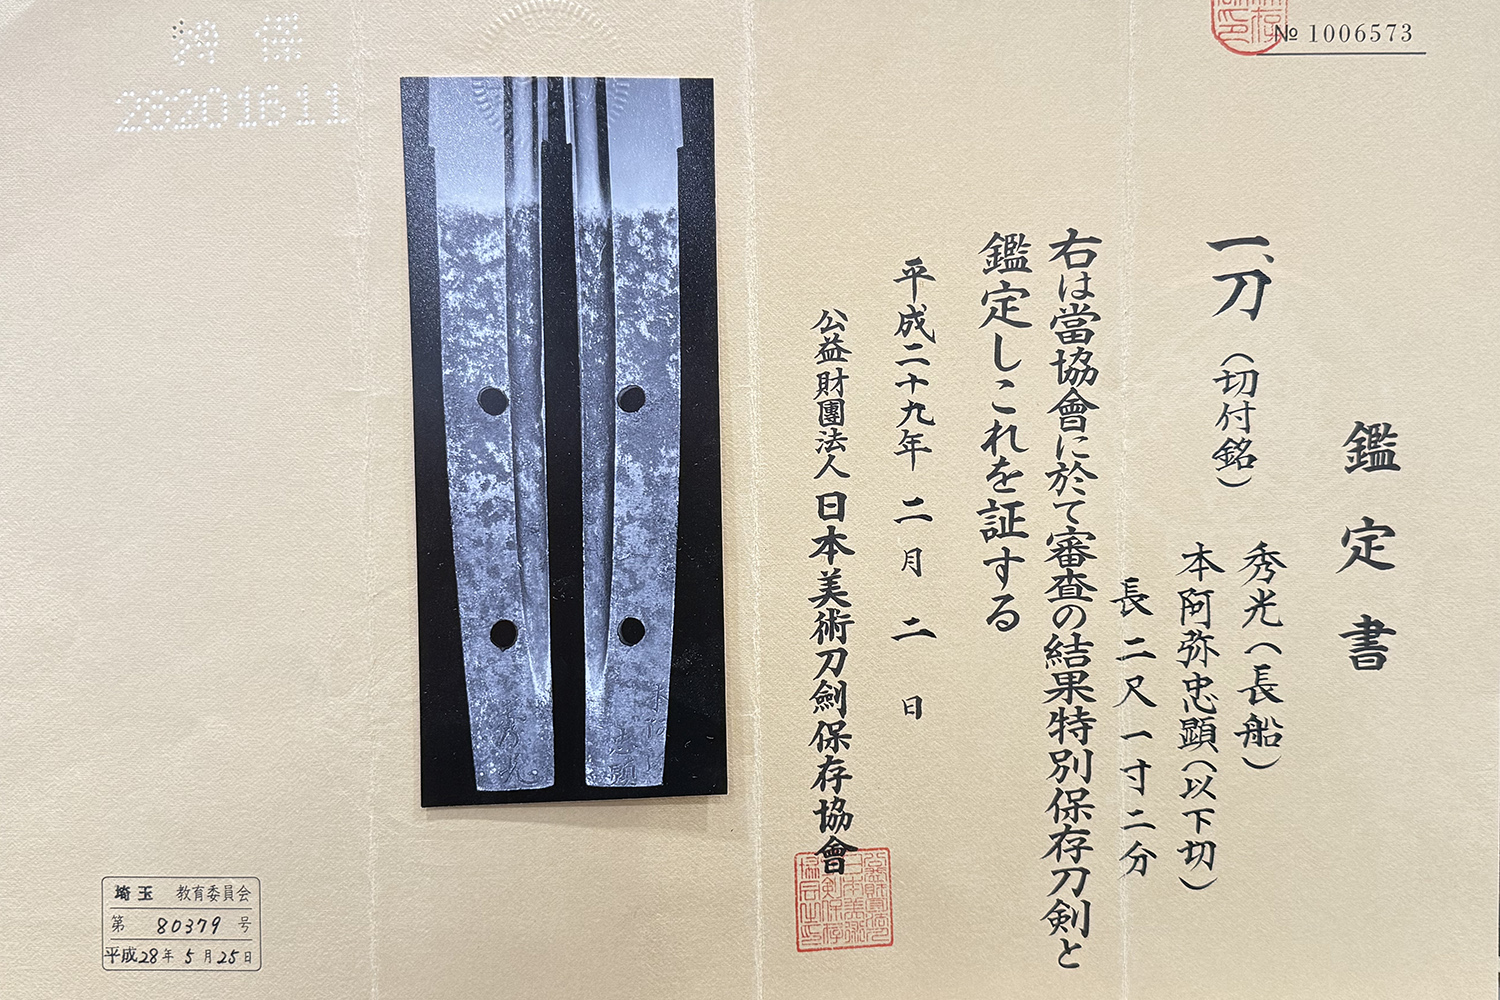 № 1006573
鑑定書
一、刀 (切付銘) 秀光(長船)
本阿弥忠顕(以下切)
長二尺一寸二分
右は當協會に於て審査の結果特別保存刀剣と
鑑定しこれを証する
平成二十九年 二月 二日
公益財團法人 日本美術刀劍保存協會
特保
28201611
埼玉 教育委員会
第 80379 号
平成28年5月25日